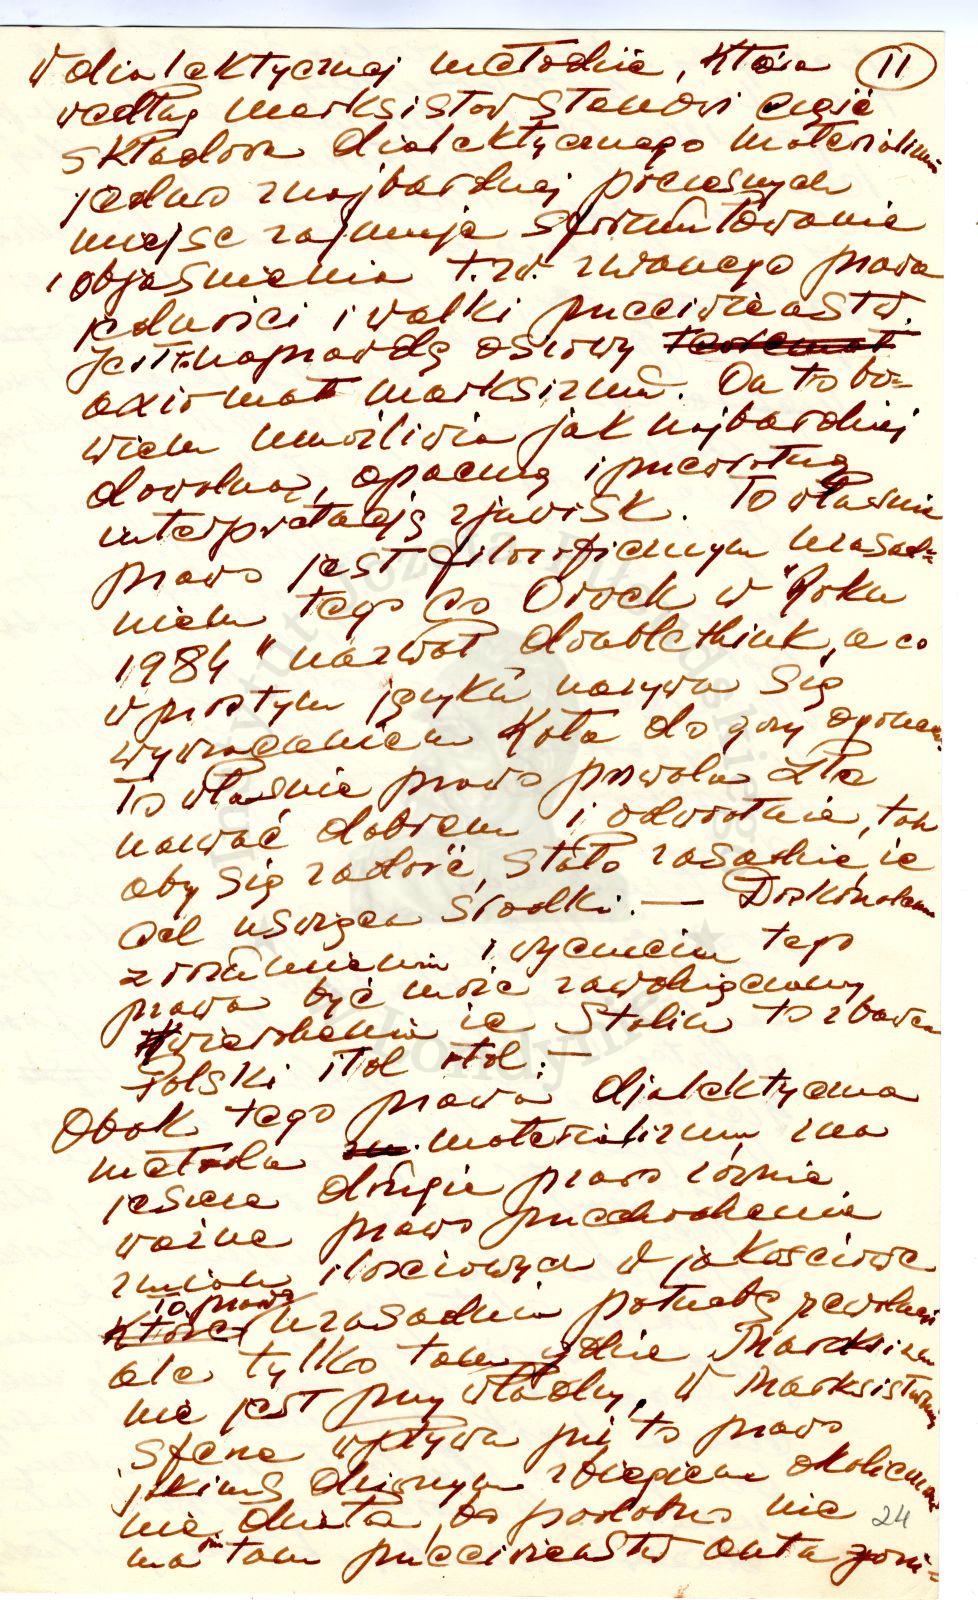 W dialektycznej metodzie, która 11
według marksistów stanowi część
składową dialektycznego materializmu
jedno z najbardziej poczesnych
miejsc zajmuje sformułowanie
i objaśnienia t.zw. zwanego prawa
jedności i walki przeciwieństw.
Jest naprawdę osiowy teoremat
axiomat marksizmu. On to bo=
wiem umożliwia jak najbardziej
dowolną, opaczną i przewrotną
interpretację zjawisk. To właśnie
prawo jest filozoficznym uzasad=
nieniem tego co Orwell w "Roku
1984" nazwał doublethink, a co
w prostym języku nazywa się
wywracaniem kota do góry ogonem.
To właśnie prawo pozwala Zło
nazwać dobrem i odwrotnie, tak
aby się zadość stało zasadzie, że
cel uświęca środki. — Doskonałemu
zrozumieniu i wyczuciu tego
prawa być może zawdzięczamy
twierdzenia że Stalin to zbawca
Polski itd itd. —
Obok tego prawa dialektyczna
metoda materializmu zna
jeszcze drugie prawo równie
ważne prawo przechodzenia
zmian ilościowych w jakościowe
To prawo
które uzasadnia potrzebę rewolucji
ale tylko tam gdzie Marksizm
nie jest przy władzy, w Marksistowskiej
sferze wpływu już to prawo
jakimś dziwnym zbiegiem okoliczności
nie działa, bo podobno nie 24
ma tam przeciwieństw antagoni=
Instytut Józefa Piłsudskiego
w Londynie